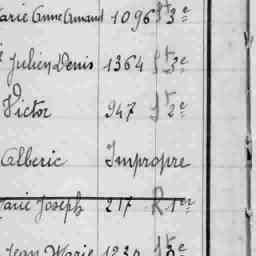 arie Anne Armand 1096 St 3e
Julien Denis 1364 St 3e
Victor 947 St 2e
Alberic Impropre
arie Joseph 217 R 1er
Jean Marie 1230 St 3e